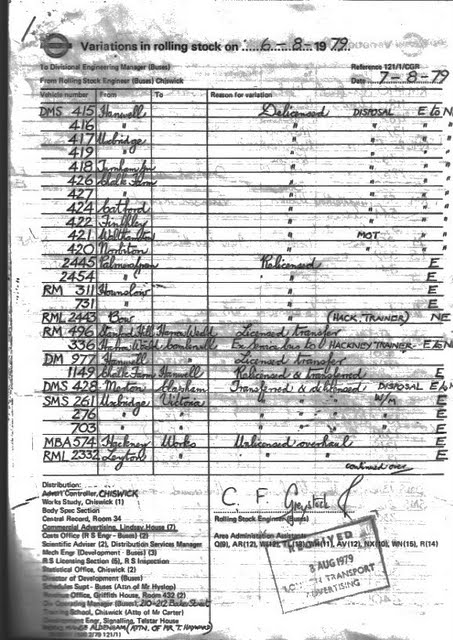 Variations in rolling stock on 6-8-1979.
To Divisional Engineering Manager (Buses) Reference 121/1/CGR
From Rolling Stock Engineer (Buses) Chiswick Date 7-8-79
Vehicle number From To Reason for variation
DMS 415 Hanwell Delicensed DISPOSAL E to N
416 " " " "
417 Uxbridge " " "
419 " " " "
418 Turnham Grn " " "
426 Chalk Farm " " "
427 " " " "
424 Catford " " "
422 Finchley " " "
421 Walthamstow " MOT "
420 Norbiton " " "
2445 Palmers Green Relicensed E
2454 " " E
RM 311 Hounslow " E
731 " " E
RML 2443 Bow " (HACK. TRAINER) NE
RM 496 Stamford Hill Harrow Weald Licensed transfer
336 Harrow Weald HACKNEY TRAINER - E to N
DM 977 Hanwell " Licensed transfer
1149 Chalk Farm Hanwell Relicensed & transferred E
DMS 428 Merton Clapham Transferred & delicensed DISPOSAL E to N
SMS 261 Uxbridge Victoria " " W/M E
276 " " " " " E
703 " " " " " E
MBA 574 Hackney Works Unlicensed overhaul E
RML 2332 Leyton " " " E
continued over
Distribution:
Advert Controller, CHISWICK
Works Study, Chiswick (1)
Body Spec Section
Central Record, Room 34
Commercial Advertising, Lindsay House (7)
Costs Office (R S Engr - Buses) (2)
Scientific Adviser (2), Distribution Services Manager
Mech Engr (Development - Buses) (3)
R S Licensing Section (5), R S Inspection
Statistical Office, Chiswick (2)
Director of Development (Buses)
Schedules Supt - Buses (Attn of Mr Hyslop)
Revenue Office, Griffith House, Room 432 (2)
Div Operating Manager (Buses), 210-212 Baker Street
Training School, Chiswick (Attn of Mr Carter)
Development Engr, Signalling, Telstar House
ALDENHAM (ATTN. OF MR. T. HAYWARD)
C. F. Greystock
Rolling Stock Engineer (Buses)
Area Administration Assistants
Q(9), AR(12), AV(12), NX(10), WN(15), R(14)
RECEIVED
8 AUG 1979
LONDON TRANSPORT
ADVERTISING